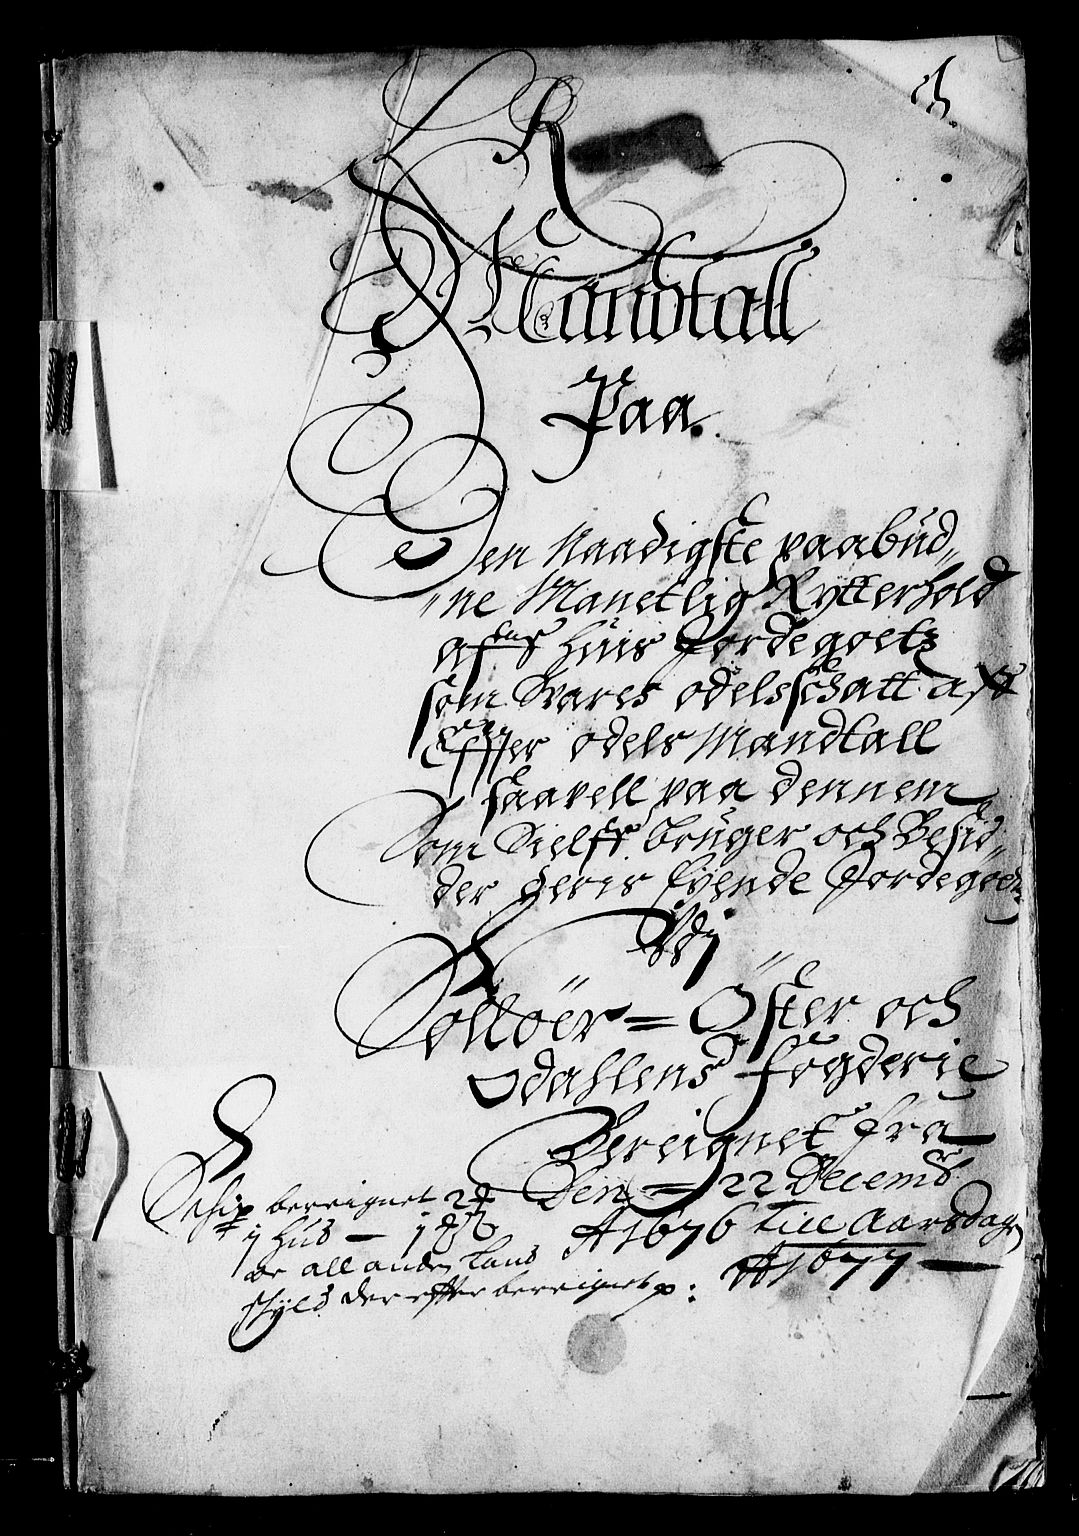 Mandtall
Paa.
Den Naadigste paabud„
„ne Manetlig Rytterhold
aff huis Jordegoetz
som Svares odelsschatt aff
Effter odels Mandtall
saavell paa dennem
Som Sielff bruger och Besid„
der deris Eyende Jordegoetz
Udj
Solløer = Öster och
Odahlens fögderie
Bereignet fra
Den = 22 Decemb
A 1676 till Aarsdag
A 1677 —
bereignet 2
j Hud — 1
all anden Land
skyld der effter bereignet p: